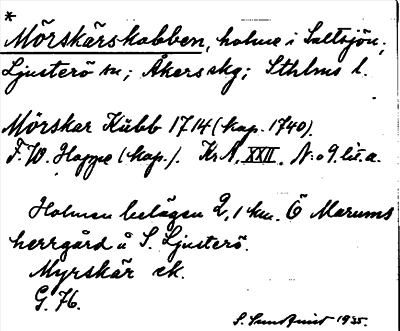 *
Mörskärskobben, holme i Saltsjön,
Ljusterö sn; Åkers skg; Sthlms l.
Mörskar Kubb 1714 (kop. 1740).
F.W. Hoppe (kop.). KrA. XXII. N:o 9. lit. a.
Holmen belägen 2,1 km. Ö Marums
herrgård å S. Ljusterö.
Myrskär ek.
G. 76.
S. Sundqvist 1935.